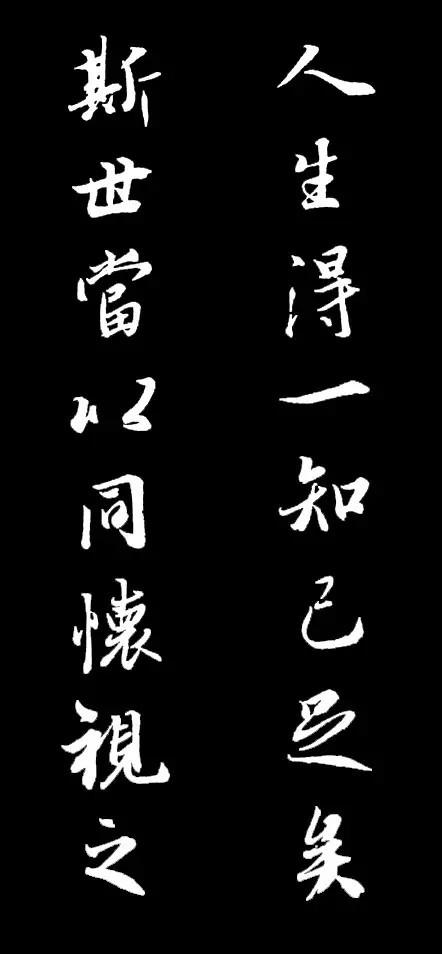 人生得一知己足矣
斯世當以同懷視之